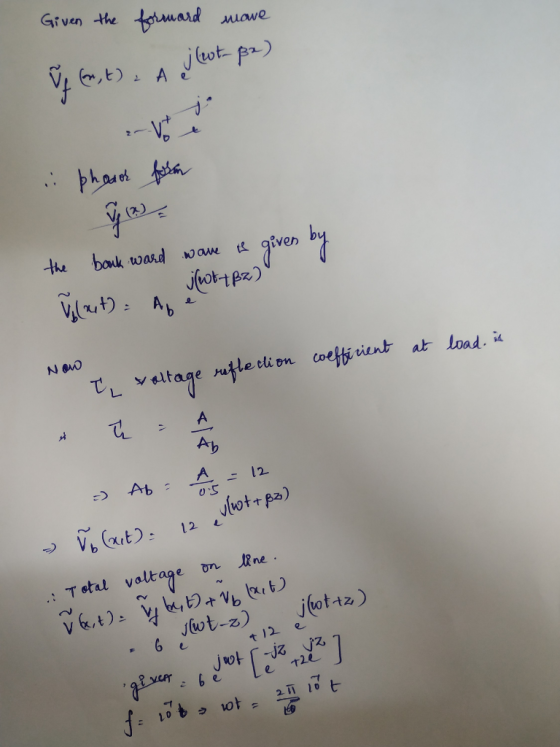 Given the forward wave
Ṽf (x,t) = A e^j(ωt-βz)
= V0+ e^j
∴ phasor form
Ṽf(x) =
the bankward wave is given by
Ṽb(x,t) = Ab e^j(ωt+βz)
Now
τL voltage reflection coefficient at load. is
τL = A/Ab
⇒ Ab = A/0.5 = 12
⇒ Ṽb(x,t) = 12 e^j(ωt+βz)
∴ Total voltage on line.
Ṽ(x,t) = Ṽf(x,t) + Ṽb(x,t)
= 6 e^j(ωt-z) + 12 e^j(ωt+z)
given = 6 e^jωt [e^-jz + 2e^jz]
f = 10^7 ⇒ ωt = 2π 10^7 t